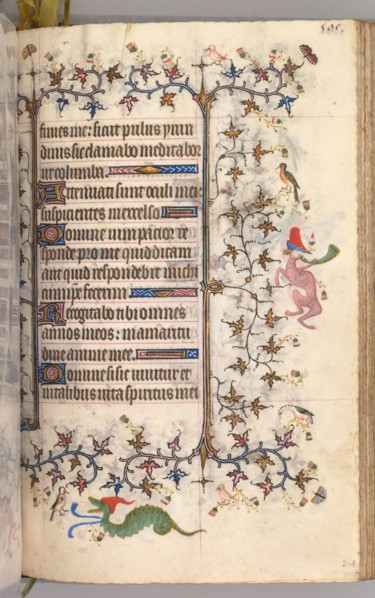 finies me: sicut pulus yrun
dinis sic clamabo meditabor
ut columba.
Attenuati sunt oculi mei:
suspicientes in excelso.
Domine uim patior re
sponde pro me quid dicam
aut quid respondebit michi
cum ip̄e fecerim.
Recogitabo tibi omnes
annos meos: in amaritu
dine anime mee.
Domine si sic uiuitur et
in talibus uita spiritus mei